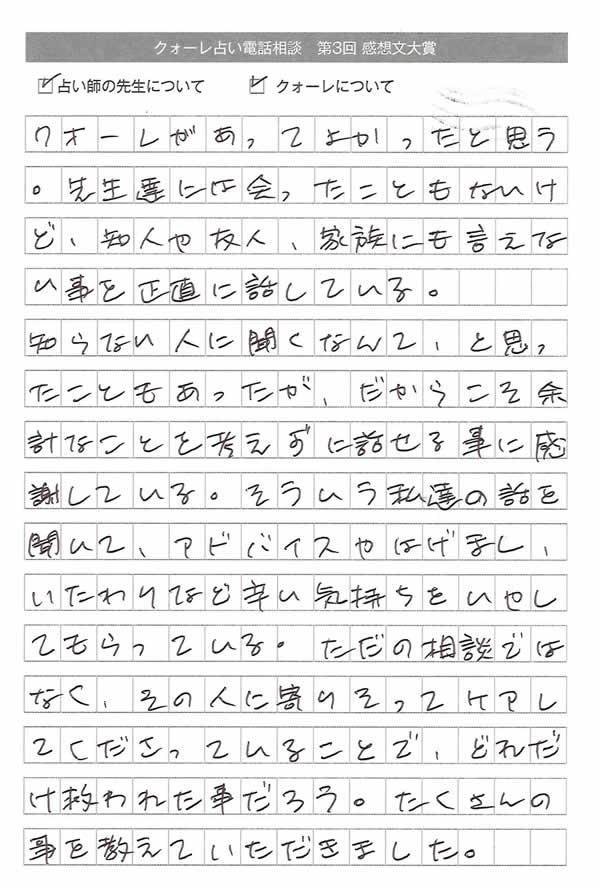 クォーレ占い電話相談　第3回 感想文大賞
☑占い師の先生について　☑クォーレについて
クォーレがあってよかったと思う
。先生達には会ったこともないけ
ど、知人や友人、家族にも言えな
い事を正直に話している。
知らない人に聞くなんて、と思っ
たこともあったが、だからこそ余
計なことを考えずに話せる事に感
謝している。そういう私達の話を
聞いて、アドバイスやはげまし、
いたわりなど辛い気持ちをいやし
てもらっている。ただの相談では
なく、その人に寄りそってケアし
てくださっていることで、どれだ
け救われた事だろう。たくさんの
事を教えていただきました。